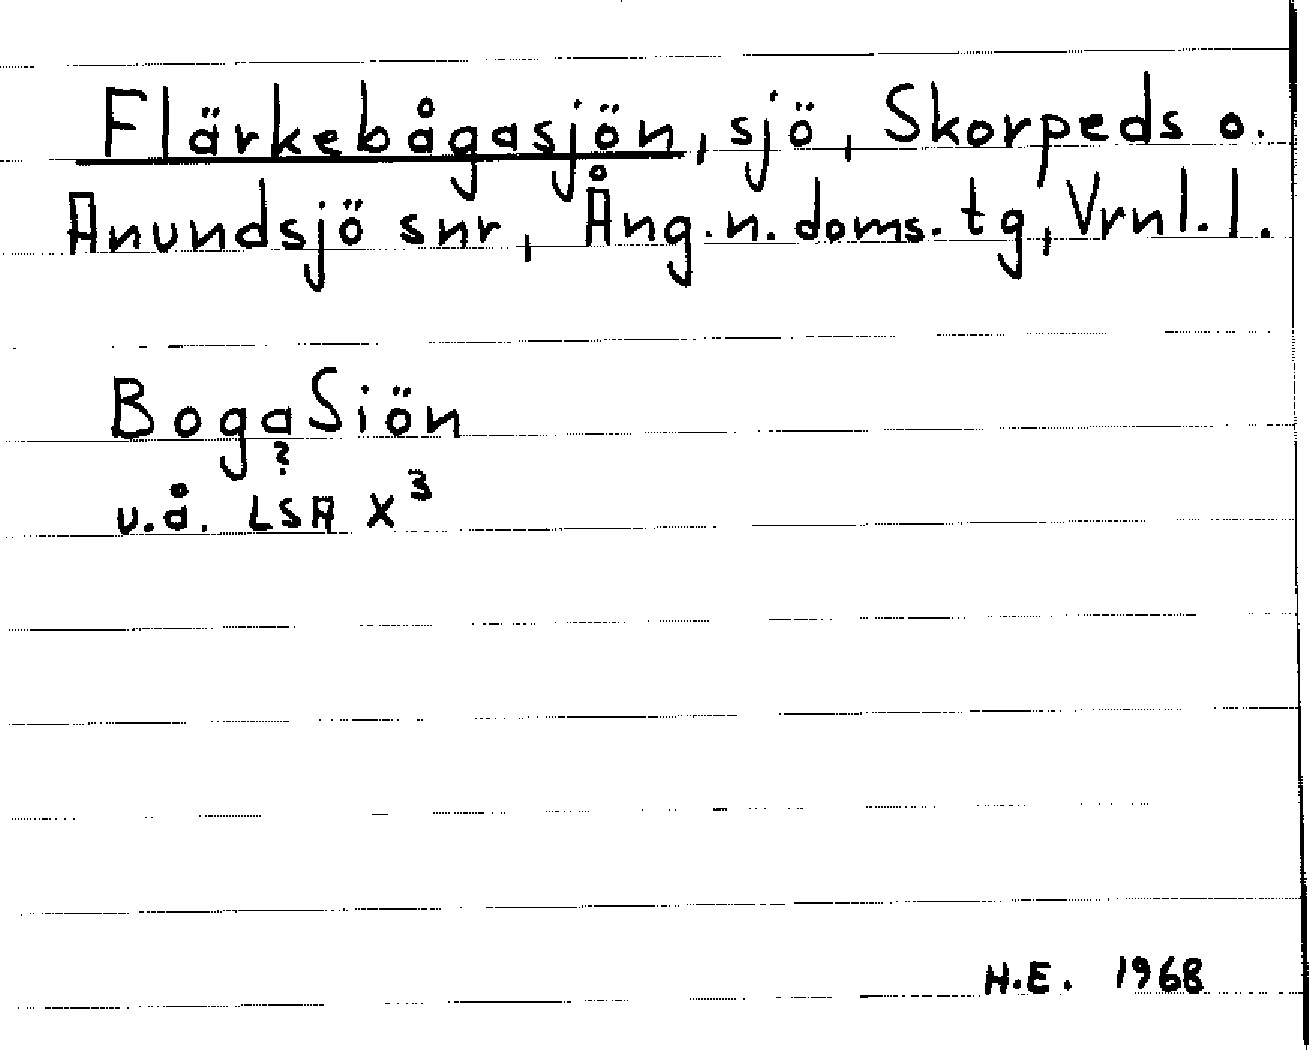 Flärkebågasjön, sjö, Skorpeds o.
Anundsjö snr, Ång.n.doms.tg, Vrnl.l.
BogaSiön
?
u.å. LSA X³
H.E. 1968